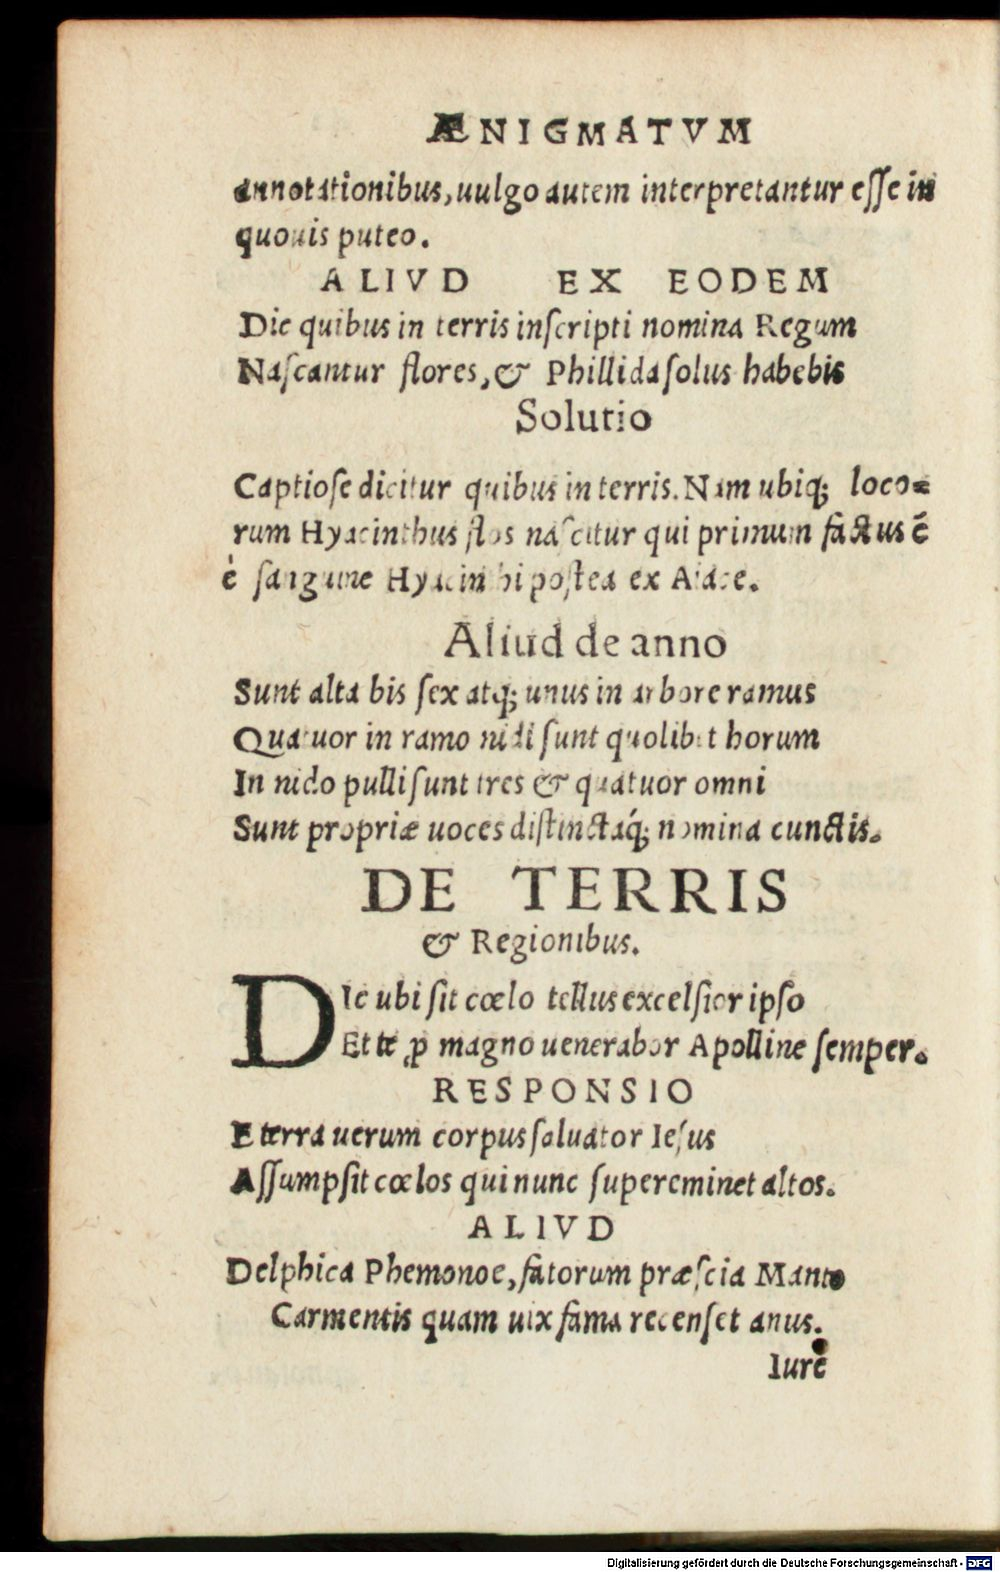 ÆNIGMATVM
annotationibus, uulgo autem interpretantur esse in
quouis puteo.
ALIVD EX EODEM
Dic quibus in terris inscripti nomina Regum
Nascantur flores, & Phillida solus habebis
Solutio
Captiose dicitur quibus in terris. Nam ubiq; loco=
rum Hyacinthus flos nascitur qui primum factus ē
è sanguine Hyacinthi postea ex Aiace.
Aliud de anno
Sunt alta bis sex atq; unus in arbore ramus
Quatuor in ramo nidi sunt quolibet horum
In nido pulli sunt tres & quatuor omni
Sunt propriæ uoces distinctaq́; nomina cunctis.
DE TERRIS
& Regionibus.
DIc ubi sit cœlo tellus excelsior ipso
Et te ꝓ magno uenerabor Apolline semper.
RESPONSIO
E terra uerum corpus saluator Iesus
Assumpsit cœlos qui nunc supereminet altos.
ALIVD
Delphica Phemonoe, fatorum præscia Manto
Carmentis quam uix fama recenset anus.
Iure
Digitalisierung gefördert durch die Deutsche Forschungsgemeinschaft - DFG